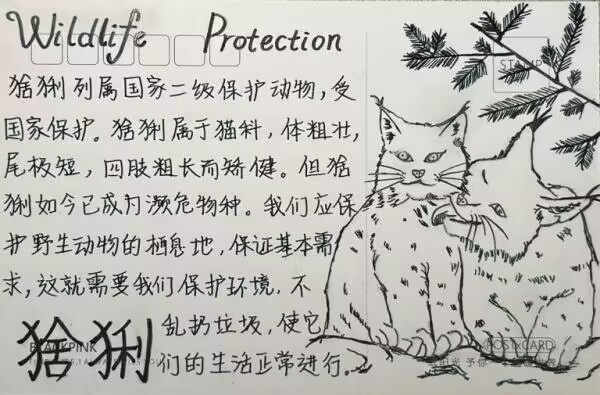 Wildlife Protection
STAMP
猞猁列属国家二级保护动物,受
国家保护。猞猁属于猫科,体粗壮,
尾极短,四肢粗长而矫健。但猞
猁如今已成为濒危物种。我们应保
护野生动物的栖息地,保证基本需
求,这就需要我们保护环境,不
乱扔垃圾,使它
们的生活正常进行。
猞猁
BLACKPINK
POSTxCARD